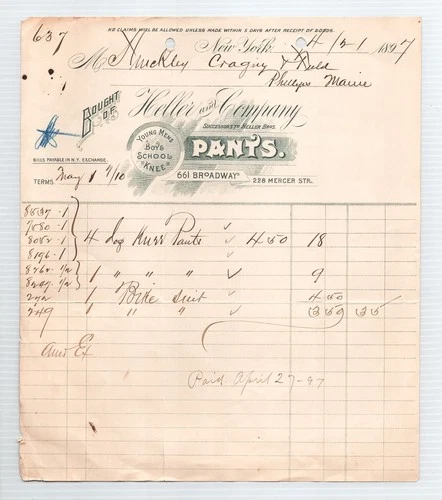 NO CLAIMS WILL BE ALLOWED UNLESS MADE WITHIN 5 DAYS AFTER RECEIPT OF GOODS.
637
New York 4/21 1897
M Hinckley Cragny & Field
Phillips Maine
BOUGHT OF
Heller and Company
SUCCESSORS TO HELLER BROS.
YOUNG MENS BOYS SCHOOL & KNEE
PANTS.
BILLS PAYABLE IN N.Y. EXCHANGE.
661 BROADWAY
228 MERCER STR.
TERMS May 1 4/10
8537-1
7080-1
8082-1 4 Doz Knee Pants 4 50 18
8196-1
8262-1/2 1 " " " 9
8209-1/2
272 1 Bike suit 4 50
249 1 " " 3 50 35
Am Ex
Paid April 27-97